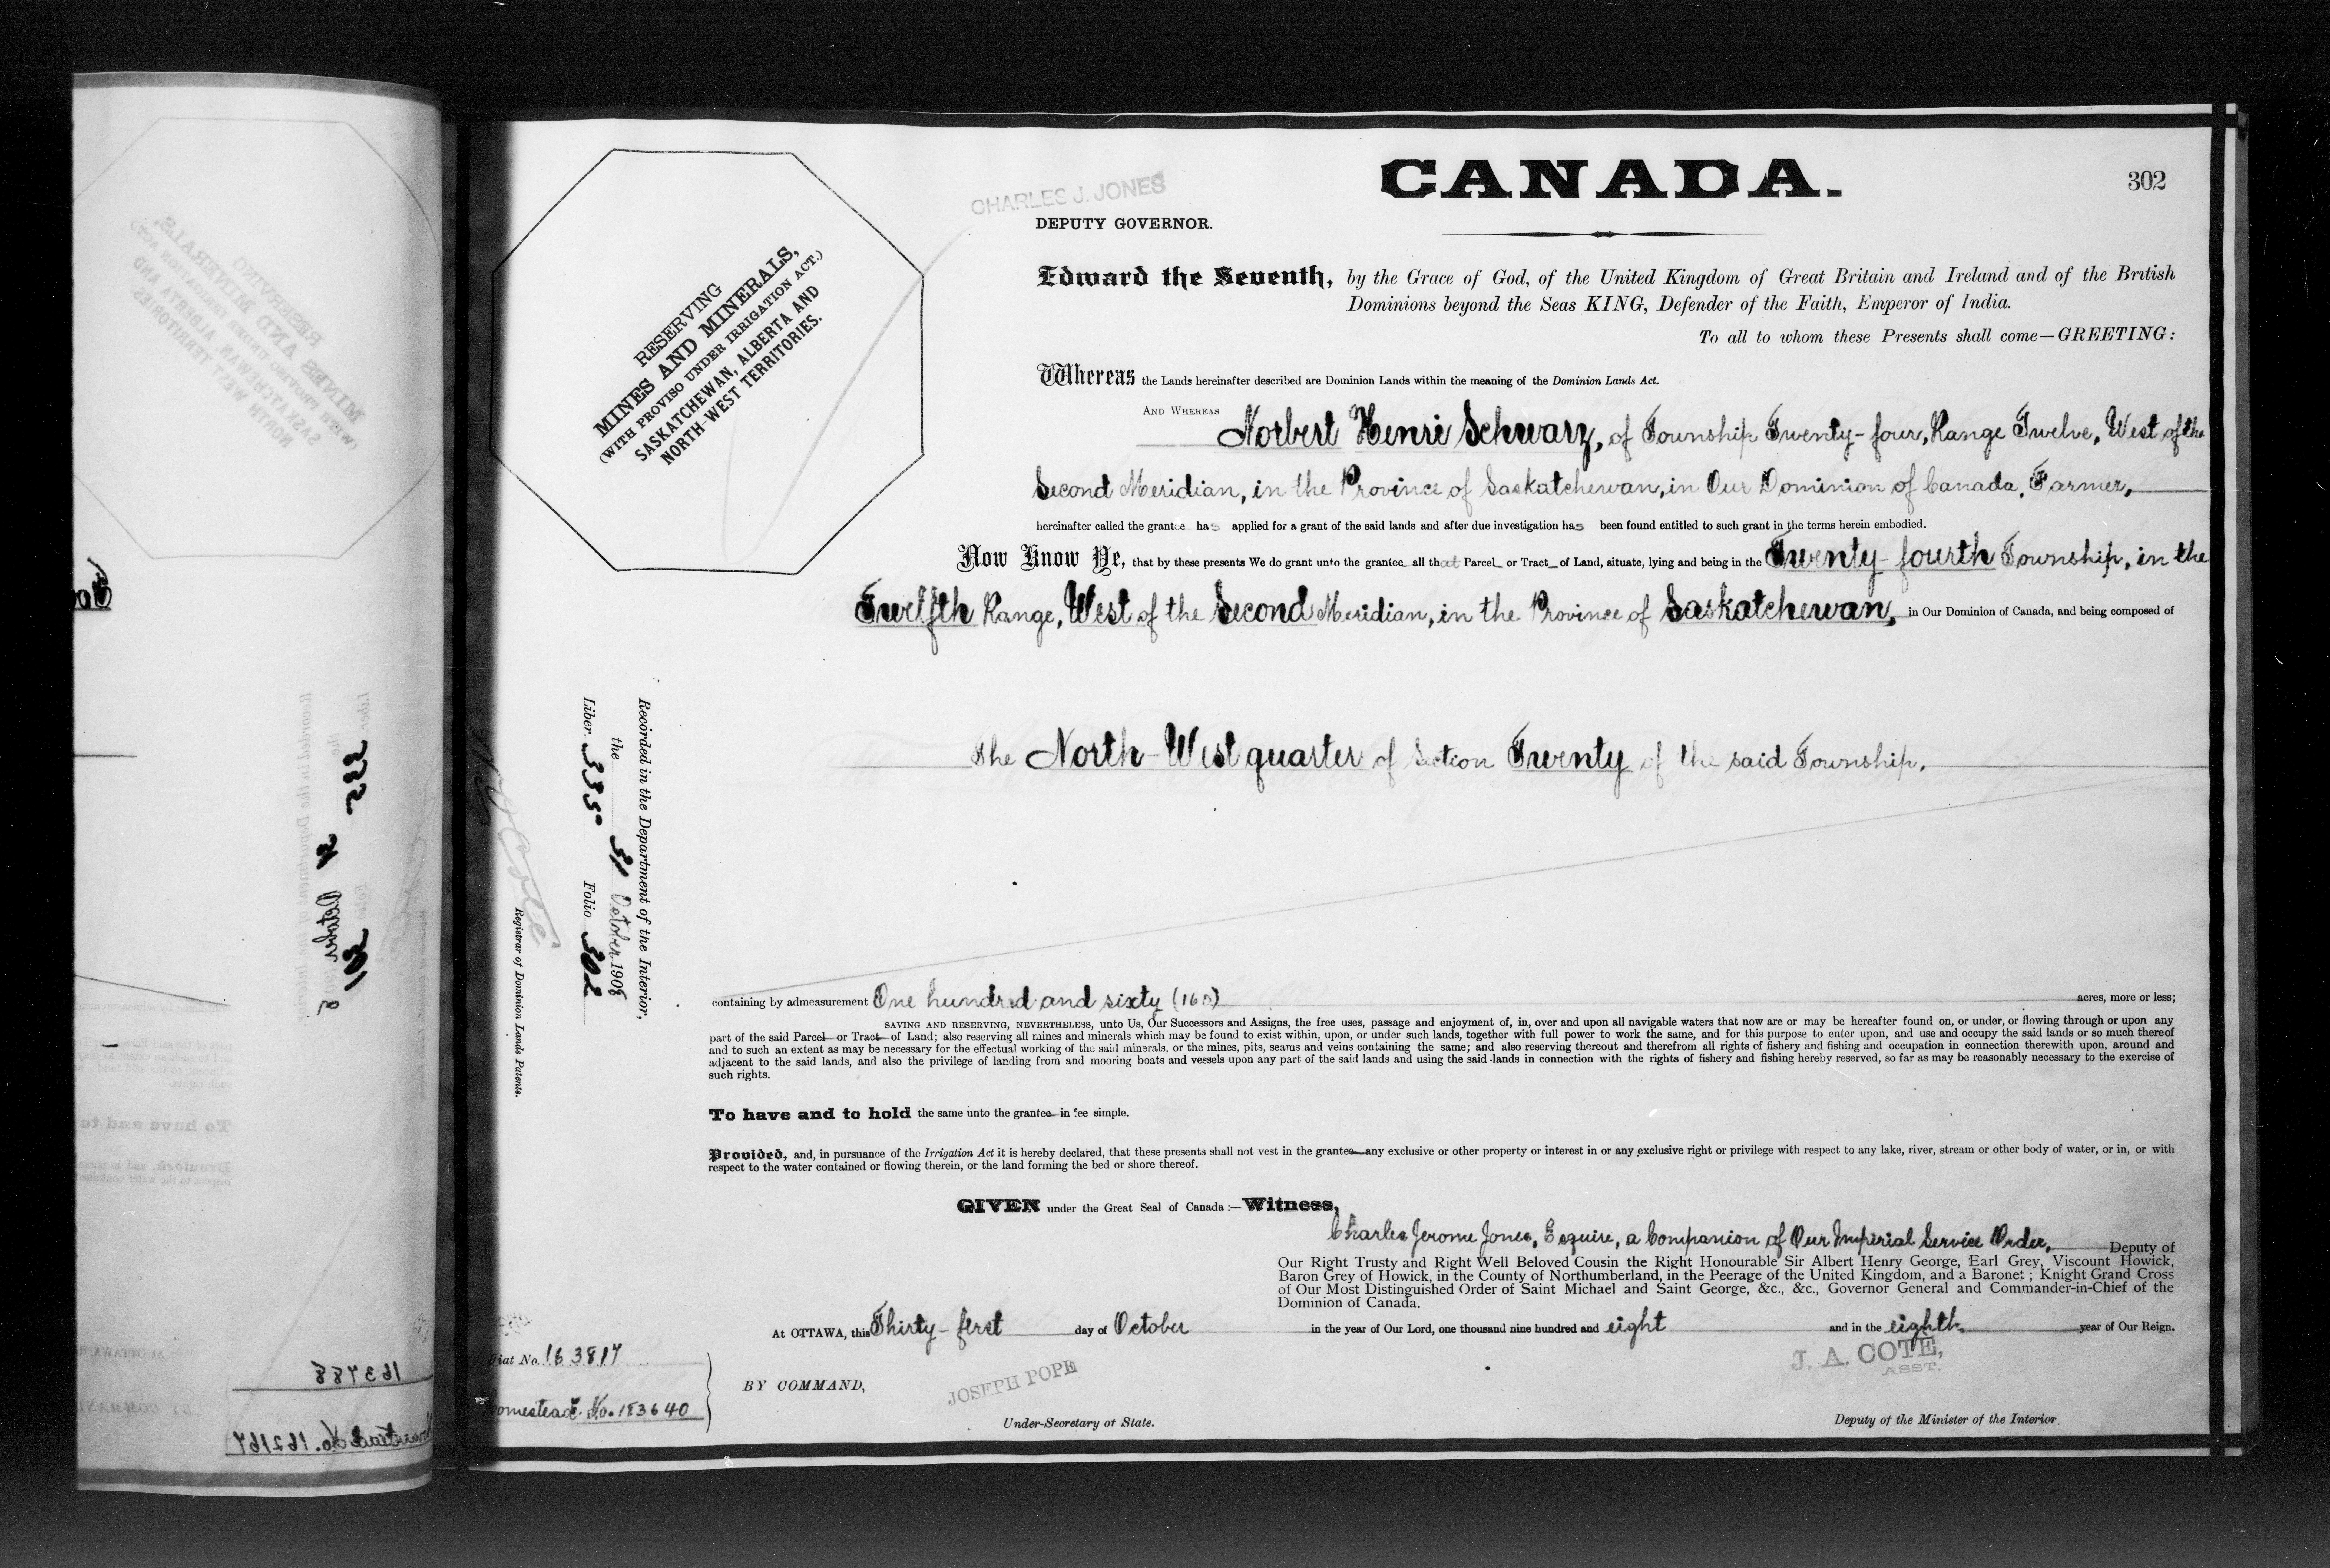 CANADA.
302
CHARLES J. JONES
DEPUTY GOVERNOR.
RESERVING
MINES AND MINERALS,
(WITH PROVISO UNDER IRRIGATION ACT.)
SASKATCHEWAN, ALBERTA AND
NORTH-WEST TERRITORIES.
Edward the Seventh, by the Grace of God, of the United Kingdom of Great Britain and Ireland and of the British
Dominions beyond the Seas KING, Defender of the Faith, Emperor of India.
To all to whom these Presents shall come—GREETING:
Whereas the Lands hereinafter described are Dominion Lands within the meaning of the Dominion Lands Act.
AND WHEREAS
Norbert Henri Schwarz, of Township Twenty-four, Range Twelve, West of the
Second Meridian, in the Province of Saskatchewan, in Our Dominion of Canada, Farmer,
hereinafter called the grantee has applied for a grant of the said lands and after due investigation has been found entitled to such grant in the terms herein embodied.
Now Know Ye, that by these presents We do grant unto the grantee all that Parcel or Tract of Land, situate, lying and being in the Twenty-fourth Township, in the
Twelfth Range, West of the Second Meridian, in the Province of Saskatchewan, in Our Dominion of Canada, and being composed of
The North-West quarter of Section Twenty of the said Township.
Recorded in the Department of the Interior,
the 31 October 1908
Liber 335 Folio 302
Registrar of Dominion Lands Patents.
containing by admeasurement One hundred and sixty (160) acres, more or less;
SAVING AND RESERVING, NEVERTHELESS, unto Us, Our Successors and Assigns, the free uses, passage and enjoyment of, in, over and upon all navigable waters that now are or may be hereafter found on, or under, or flowing through or upon any
part of the said Parcel or Tract of Land; also reserving all mines and minerals which may be found to exist within, upon, or under such lands, together with full power to work the same, and for this purpose to enter upon, and use and occupy the said lands or so much thereof
and to such an extent as may be necessary for the effectual working of the said minerals, or the mines, pits, seams and veins containing the same; and also reserving thereout and therefrom all rights of fishery and fishing and occupation in connection therewith upon, around and
adjacent to the said lands, and also the privilege of landing from and mooring boats and vessels upon any part of the said lands and using the said lands in connection with the rights of fishery and fishing hereby reserved, so far as may be reasonably necessary to the exercise of
such rights.
To have and to hold the same unto the grantee in fee simple.
Provided, and, in pursuance of the Irrigation Act it is hereby declared, that these presents shall not vest in the grantee any exclusive or other property or interest in or any exclusive right or privilege with respect to any lake, river, stream or other body of water, or in, or with
respect to the water contained or flowing therein, or the land forming the bed or shore thereof.
GIVEN under the Great Seal of Canada:—Witness,
Charles Jerome Jones, Esquire, a Companion of Our Imperial Service Order, Deputy of
Our Right Trusty and Right Well Beloved Cousin the Right Honourable Sir Albert Henry George, Earl Grey, Viscount Howick,
Baron Grey of Howick, in the County of Northumberland, in the Peerage of the United Kingdom, and a Baronet; Knight Grand Cross
of Our Most Distinguished Order of Saint Michael and Saint George, &c., &c., Governor General and Commander-in-Chief of the
Dominion of Canada.
At OTTAWA, this Thirty-first day of October in the year of Our Lord, one thousand nine hundred and eight and in the eighth year of Our Reign.
Fiat No. 163817
Homestead No. 183640
BY COMMAND,
JOSEPH POPE
Under-Secretary of State.
J. A. COTE,
ASST.
Deputy of the Minister of the Interior.